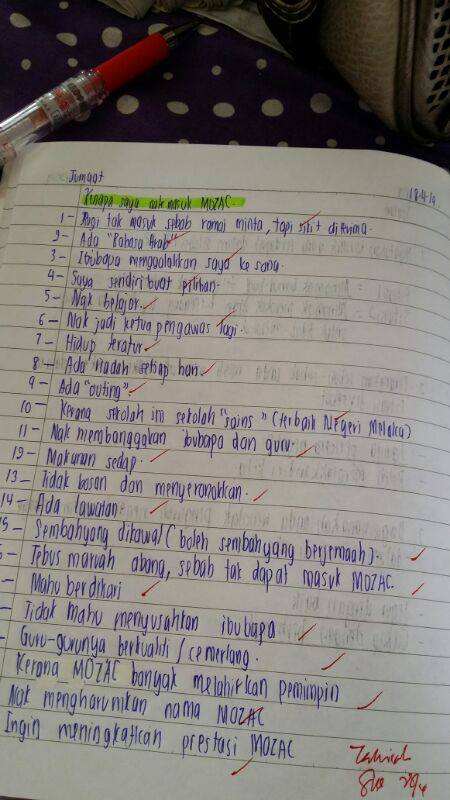 Jumaat
18.4.14
Kenapa saya nak masuk MOZAC.
1- Rugi tak masuk sebab ramai minta, tapi sikit diterima.
2- Ada "Bahasa Arab"
3- Ibubapa menggalakkan saya ke sana.
4- Saya sendiri buat pilihan.
5- Nak belajar.
6- Nak jadi ketua pengawas lagi.
7- Hidup teratur
8- Ada riadah setiap hari.
9- Ada "outing"
10- Kerana sekolah ini sekolah "sains" (terbaik Negeri Melaka)
11- Nak membanggakan ibubapa dan guru.
12- Makanan sedap.
13- Tidak bosan dan menyeronokkan.
14- Ada lawatan
15- Sembahyang dikawal (boleh sembahyang berjemaah).
- Tebus maruah abang, sebab tak dapat masuk MOZAC.
- Mahu berdikari
- Tidak mahu menyusahkan ibubapa
- Guru-gurunya berkualiti / cemerlang.
Kerana MOZAC banyak melahirkan pemimpin
Nak mengharumkan nama MOZAC
Ingin meningkatkan prestasi MOZAC